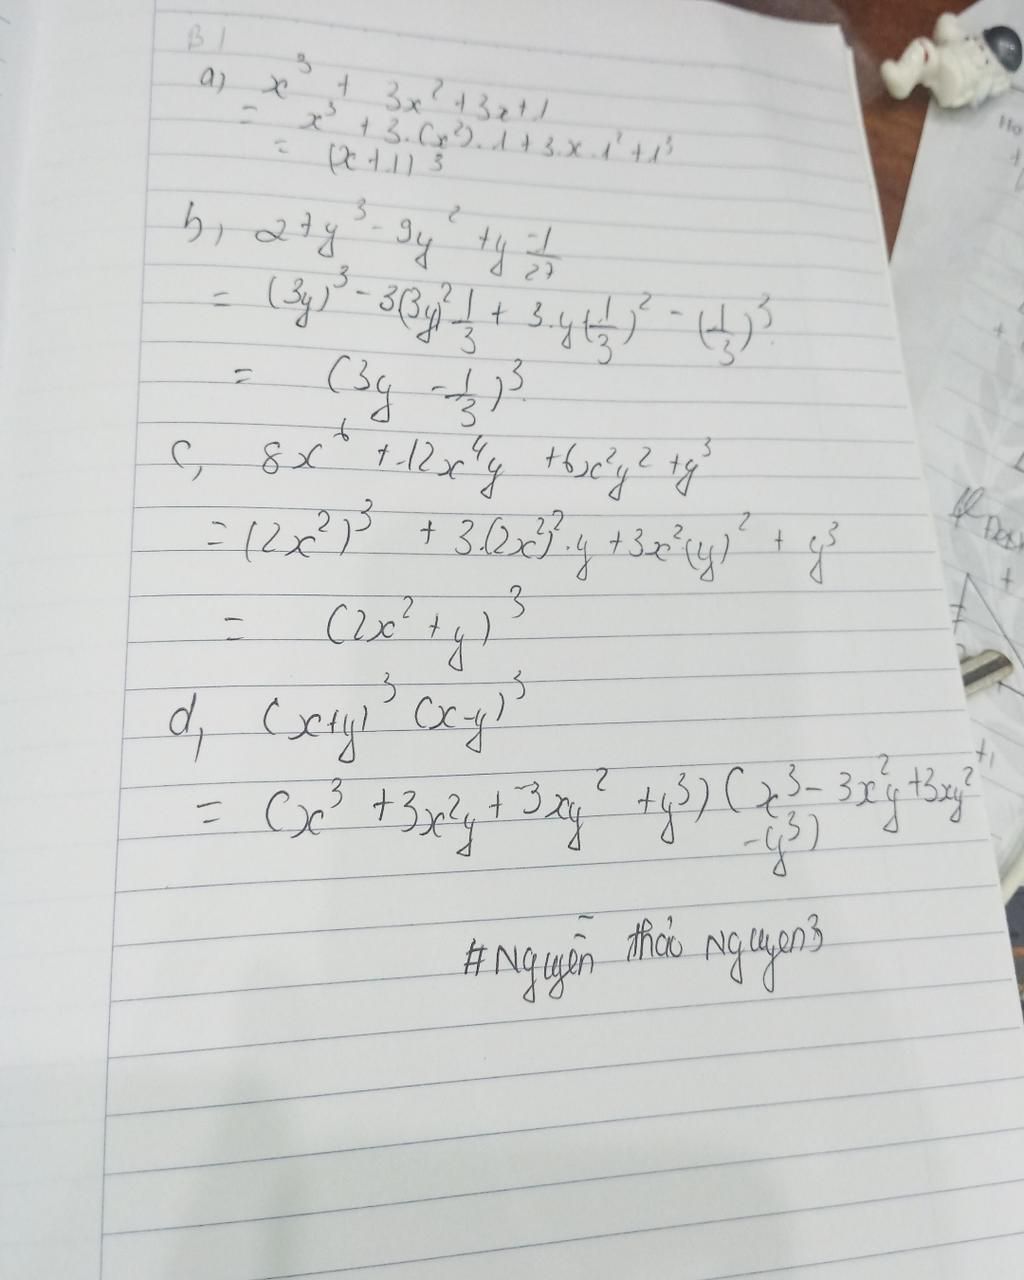 B1
a) x³ + 3x² + 3x + 1
= x³ + 3.(x²).1 + 3.x.1² + 1³
= (x + 1)³
b, 27y³ - 9y² + y -1/27
= (3y)³ - 3(3y)² 1/3 + 3.y(1/3)² - (1/3)³
= (3y - 1/3)³
c, 8x⁶ + 12x⁴y + 6x²y² + y³
= (2x²)³ + 3.(2x²)².y + 3x²(y)² + y³
= (2x² + y)³
d, (x+y)³ (x-y)³
= (x³ + 3x²y + 3xy² + y³) (x³ - 3x²y + 3xy²
- y³)
#Nguyễn thảo Nguyen3